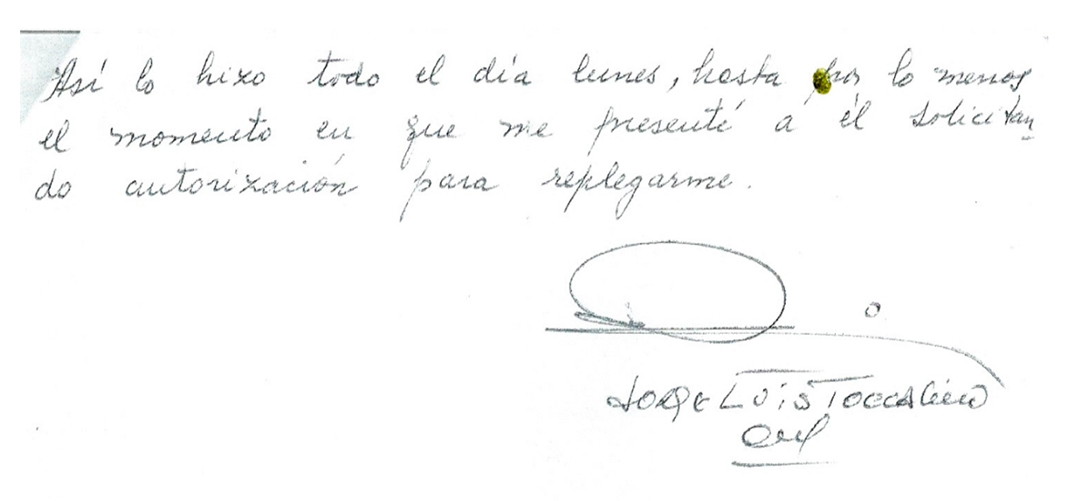 Así lo hizo todo el día lunes, hasta por lo menos
el momento en que me presenté a él solicitan
do autorización para replegarme.
JORGE LUIS TOCCALINO
Crl